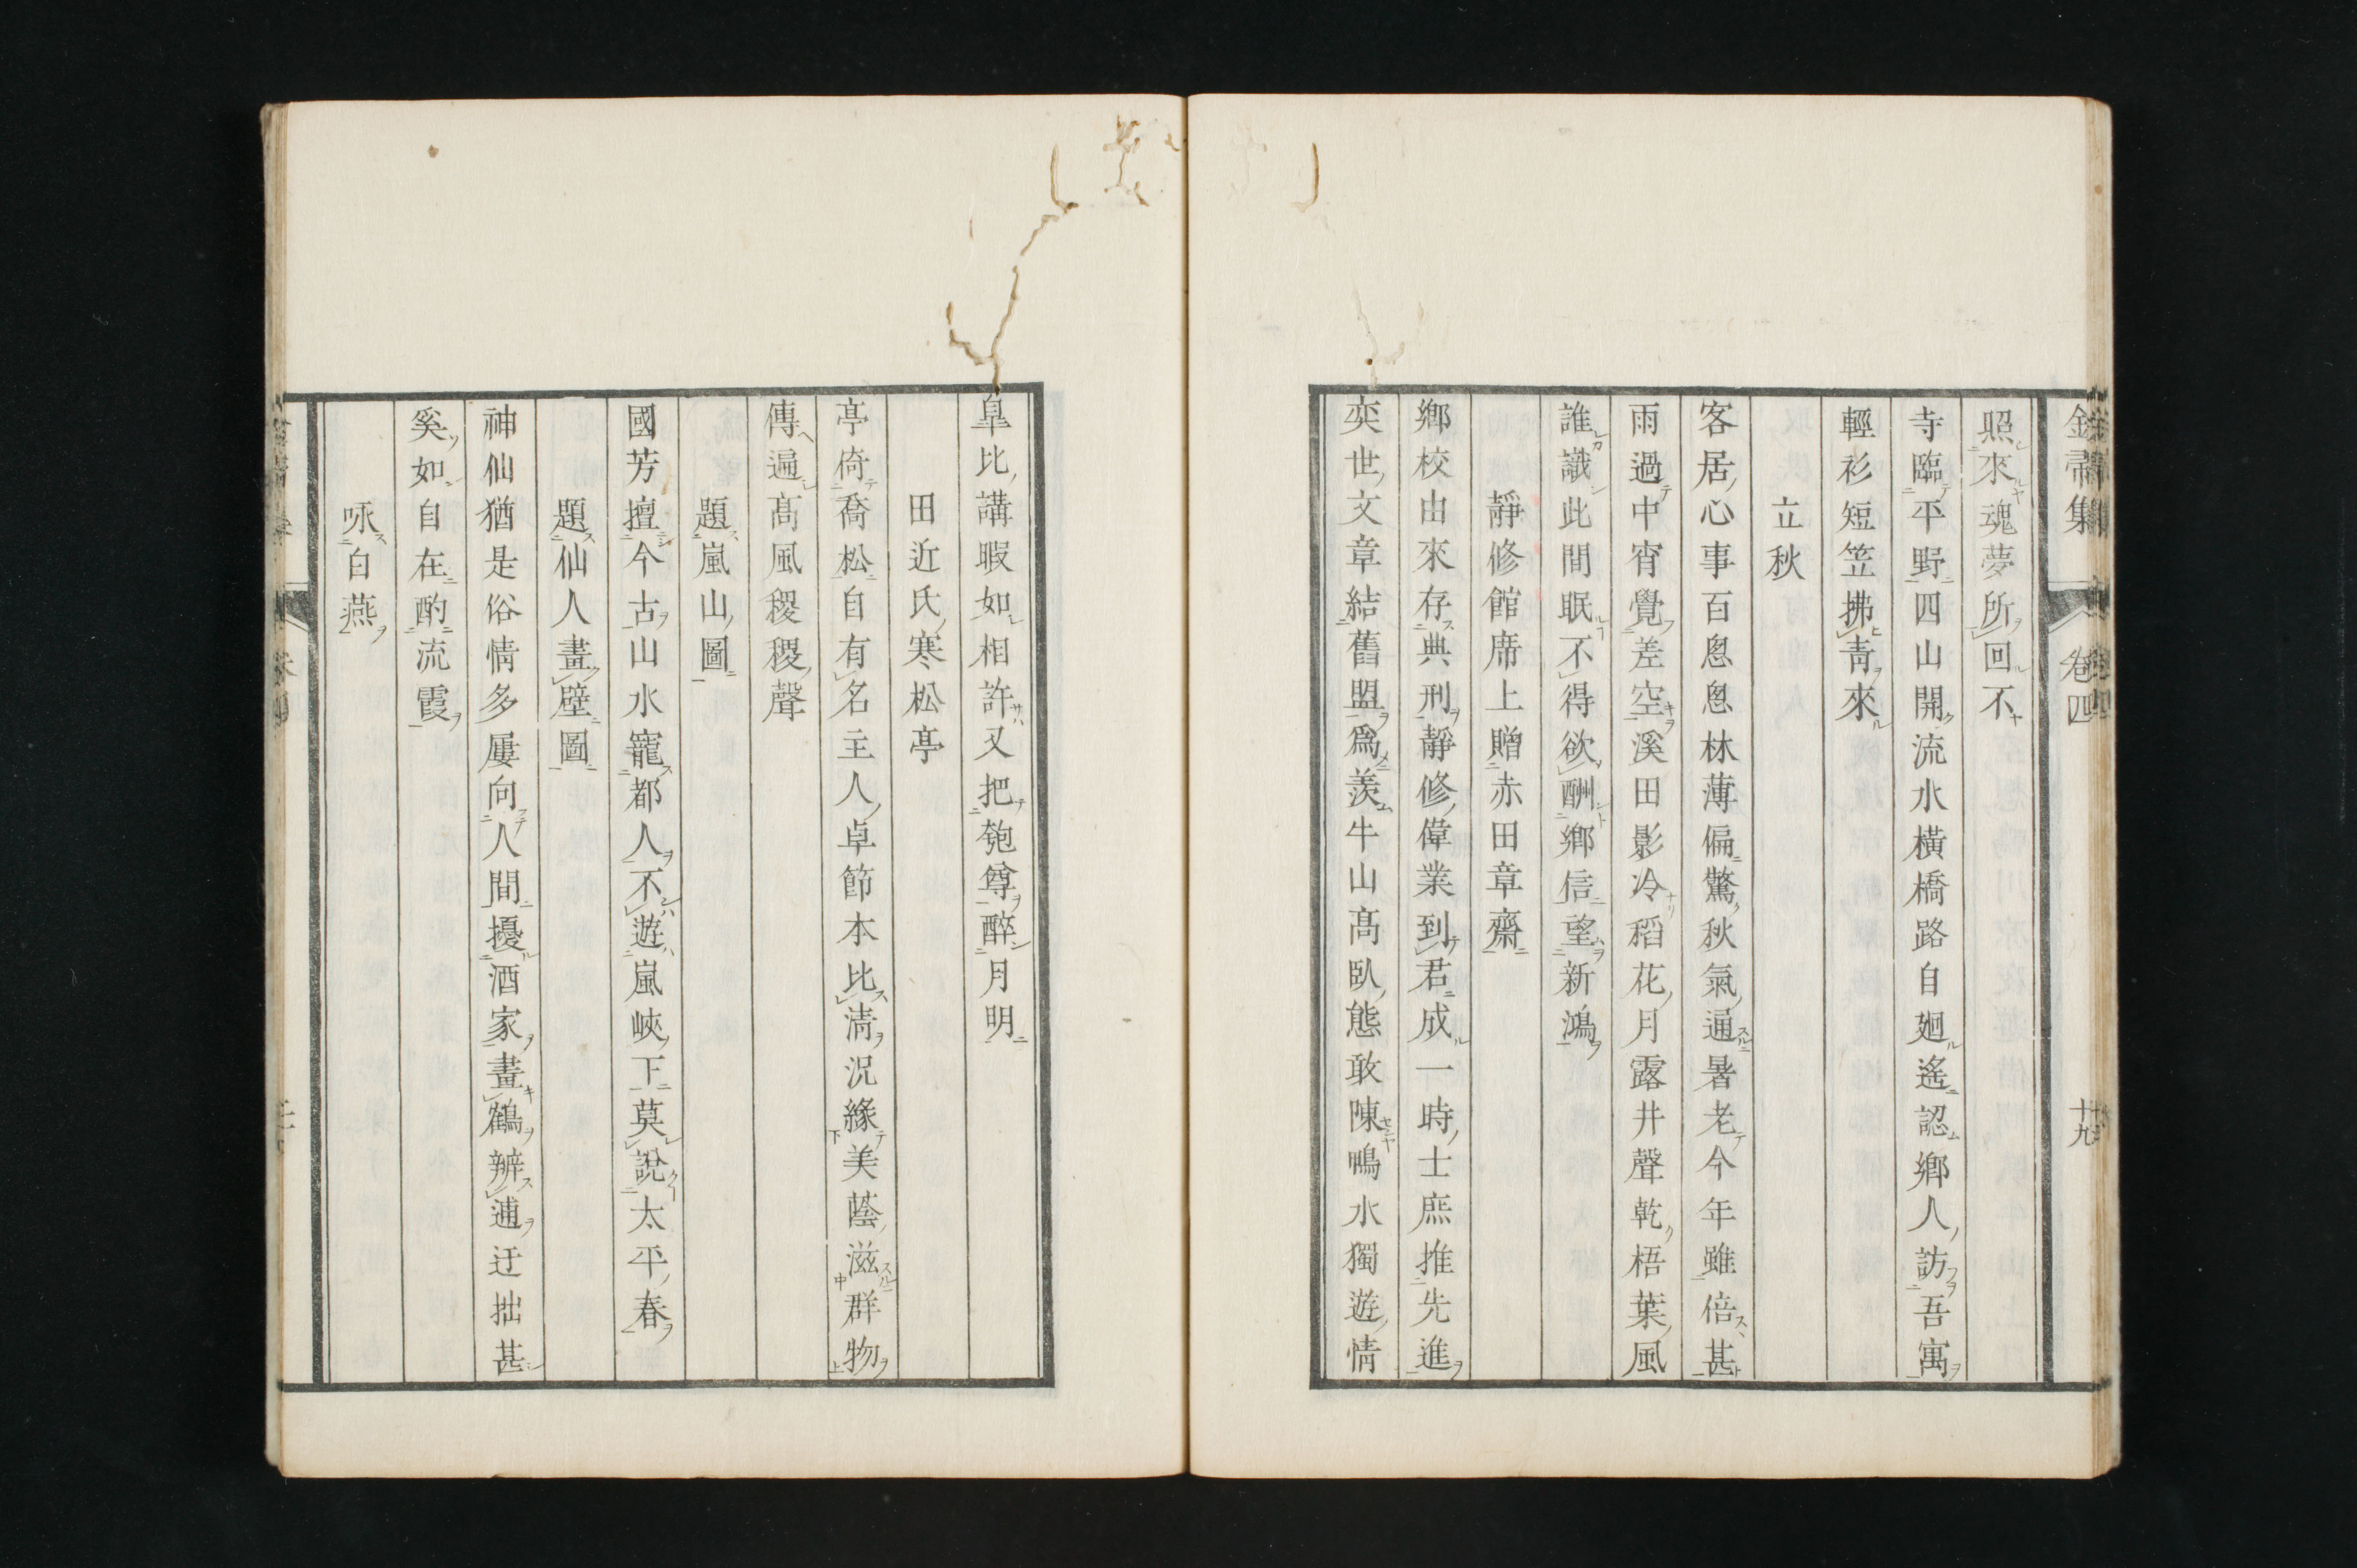 金帚集 卷四 十九
照來魂夢所回不
寺臨平野四山開流水橫橋路自廻遙認鄉人訪吾寓
輕衫短笠拂青來
立秋
客居心事百悤悤林薄偏驚秋氣通暑老今年雖倍甚
雨過中宵覺差空溪田影冷稻花月露井聲乾梧葉風
誰識此間眠不得欲酬鄉信望新鴻
靜修館席上贈赤田章齋
鄉校由來存典刑靜修偉業到君成一時士庶推先進
奕世文章結舊盟爲羨牛山高臥態敢陳鳴水獨遊情
皐比講暇如相許又把匏尊醉月明
田近氏寒松亭
亭倚喬松自有名主人卓節本比淸況緣美蔭滋群物
傳遍高風稷稷聲
題嵐山圖
國芳擅今古山水寵都人不遊嵐峽下莫說太平春
題仙人畫壁圖
神仙猶是俗情多屢向人間擾酒家畫鶴辨逋迂拙甚
奚如自在酌流霞
咏白燕